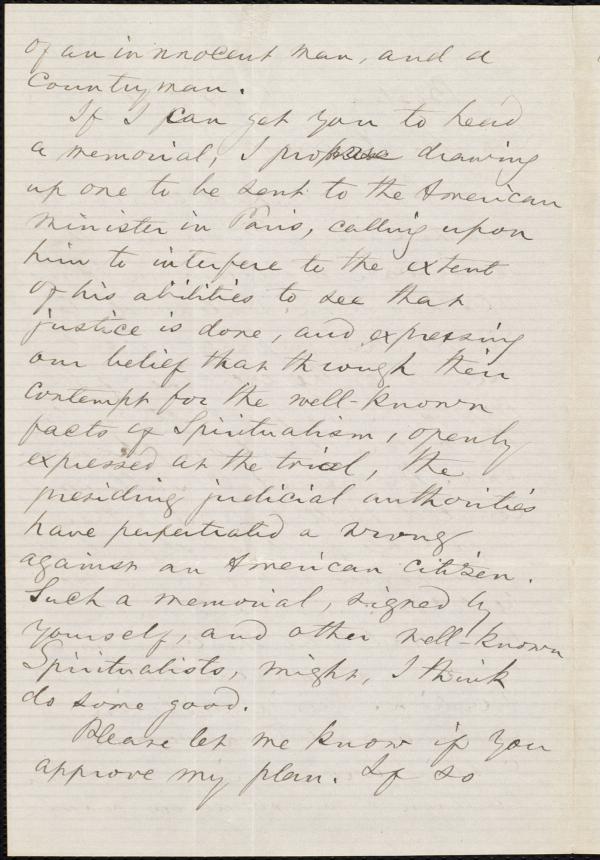 of an innnocent man, and a
countryman.
If I can get you to head
a memorial, I propose drawing
up one to be sent to the American
minister in Paris, calling upon
him to interfere to the extent
of his abilities to see that
justice is done, and expressing
our belief that through their
contempt for the well-known
facts of Spiritualism, openly
expressed at the trial, the
presiding judicial authorities
have perpetrated a wrong
against an American citizen.
Such a memorial, signed by
yourself, and other well-known
Spiritualists, might, I think
do some good.
Please let me know if you
approve my plan. If so